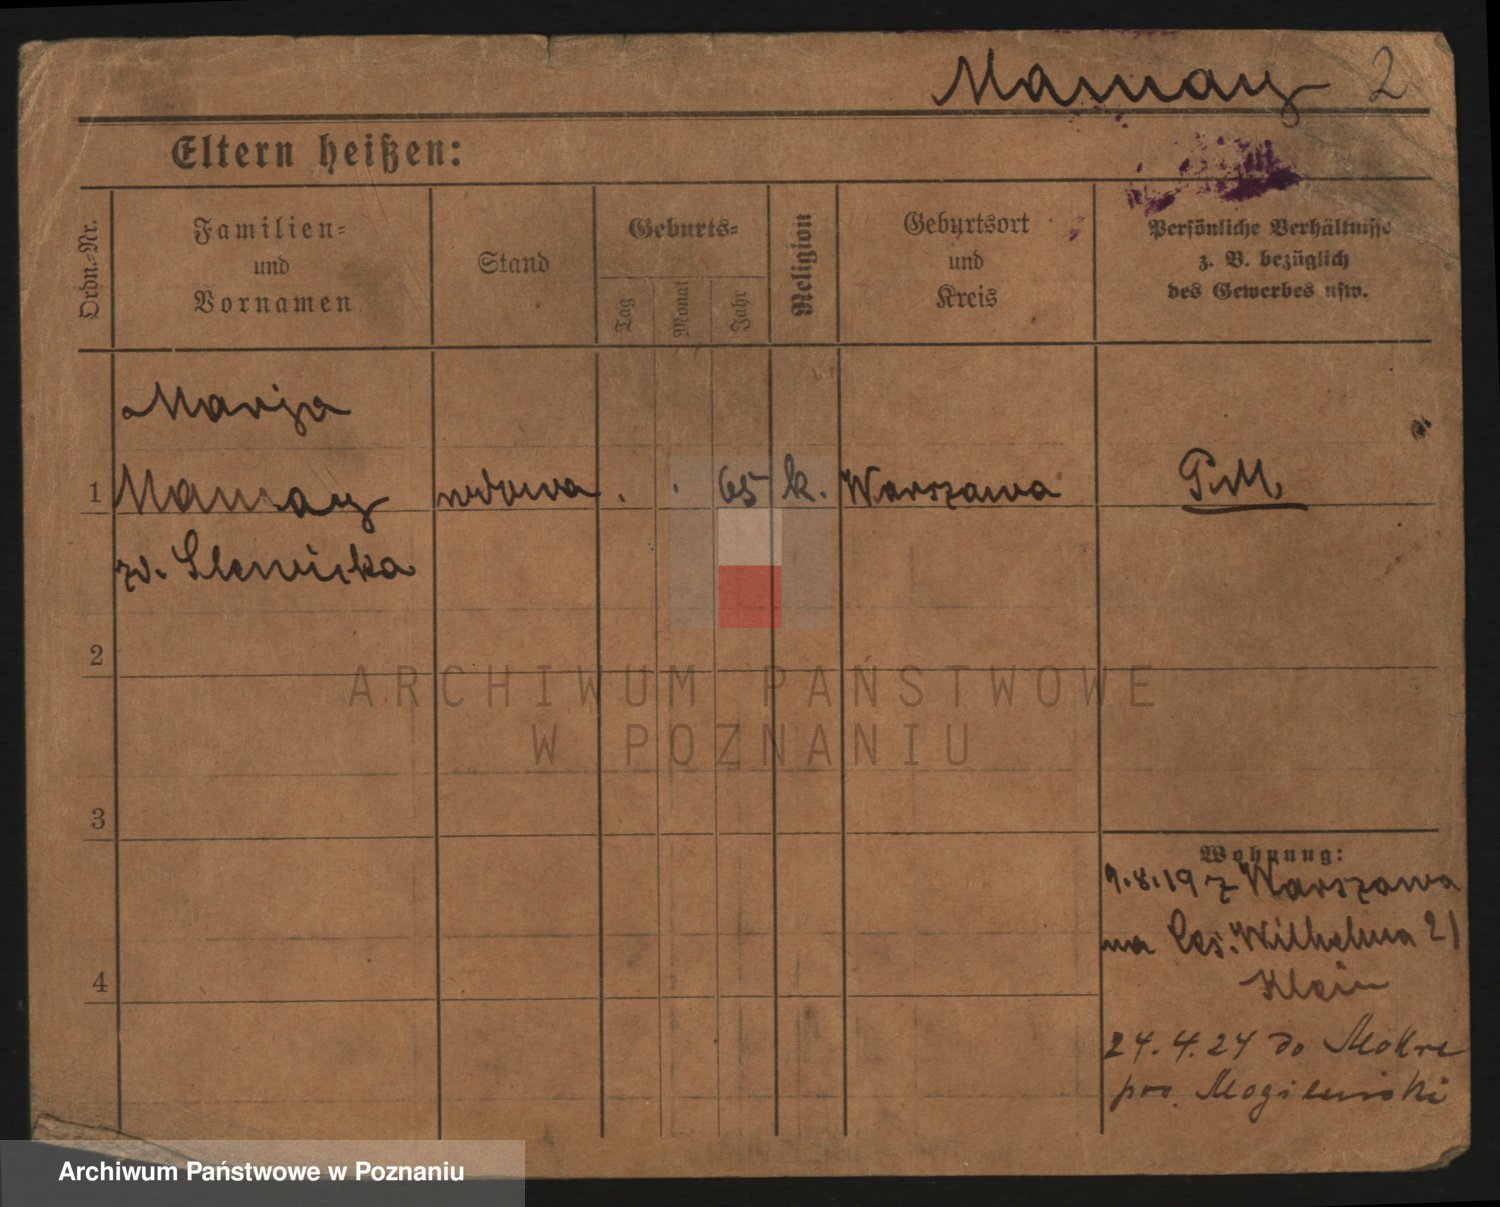 Mamay 2
Eltern heißen:
Ordn.-Nr.
Familien-
und
Vornamen
Stand
Geburts-
Tag
Monat
Jahr
Religion
Geburtsort
und
Kreis
Persönliche Verhältnisse
z. B. bezüglich
des Gewerbes usw.
Marja
1 Mamay wdowa . . 65 k. Warszawa P.M.
zd. Slewicka
2
ARCHIWUM PAŃSTWOWE
W POZNANIU
3
Wohnung:
1.8.19 z Warszawa
na Ces. Wilhelma 21
4
Klein
24.4.24 do Mokre
pow. Mogilewski
Archiwum Państwowe w Poznaniu